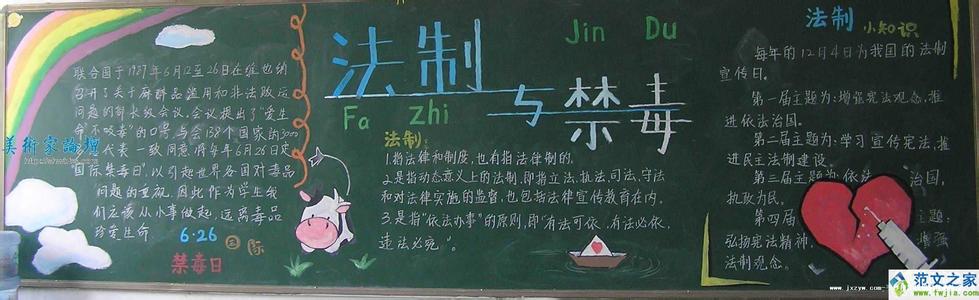 联合国于1987年6月12至26日在维也纳
召开了关于麻醉品滥用和非法贩运
问题的部长级会议,会议提出了“爱生
命不吸毒”的口号,与会138个国家的3000
代表一致同意将每年6月26日定
国际禁毒日”,以引起世界各国对毒品
问题的重视,因此作为学生我
们应该从小事做起,远离毒品
珍爱生命
6·26
国际
禁毒日
美術家論壇
法制
Fa Zhi
与
Jin Du
禁毒
法制:
1.指法律和制度,也有指法律制的。
2.是指动态意义上的法制,即指立法、执法、司法、守法
和对法律实施的监督,也包括法律宣传教育在内。
3.是指“依法办事”的原则,即“有法可依,有法必依,
违法必究”。
法制 小知识
每年的12月4日为我国的法制
宣传日。
第一届主题为:增强宪法观念,推
进依法治国。
第二届主题为:学习宣传宪法,推
进民主法制建设。
第三届主题为:依法 治国,
执政为民。
第四届 主题:
弘扬宪法精神, 增强
法制观念。
www.jxzyw.com
范文之家
www.fwjia.com